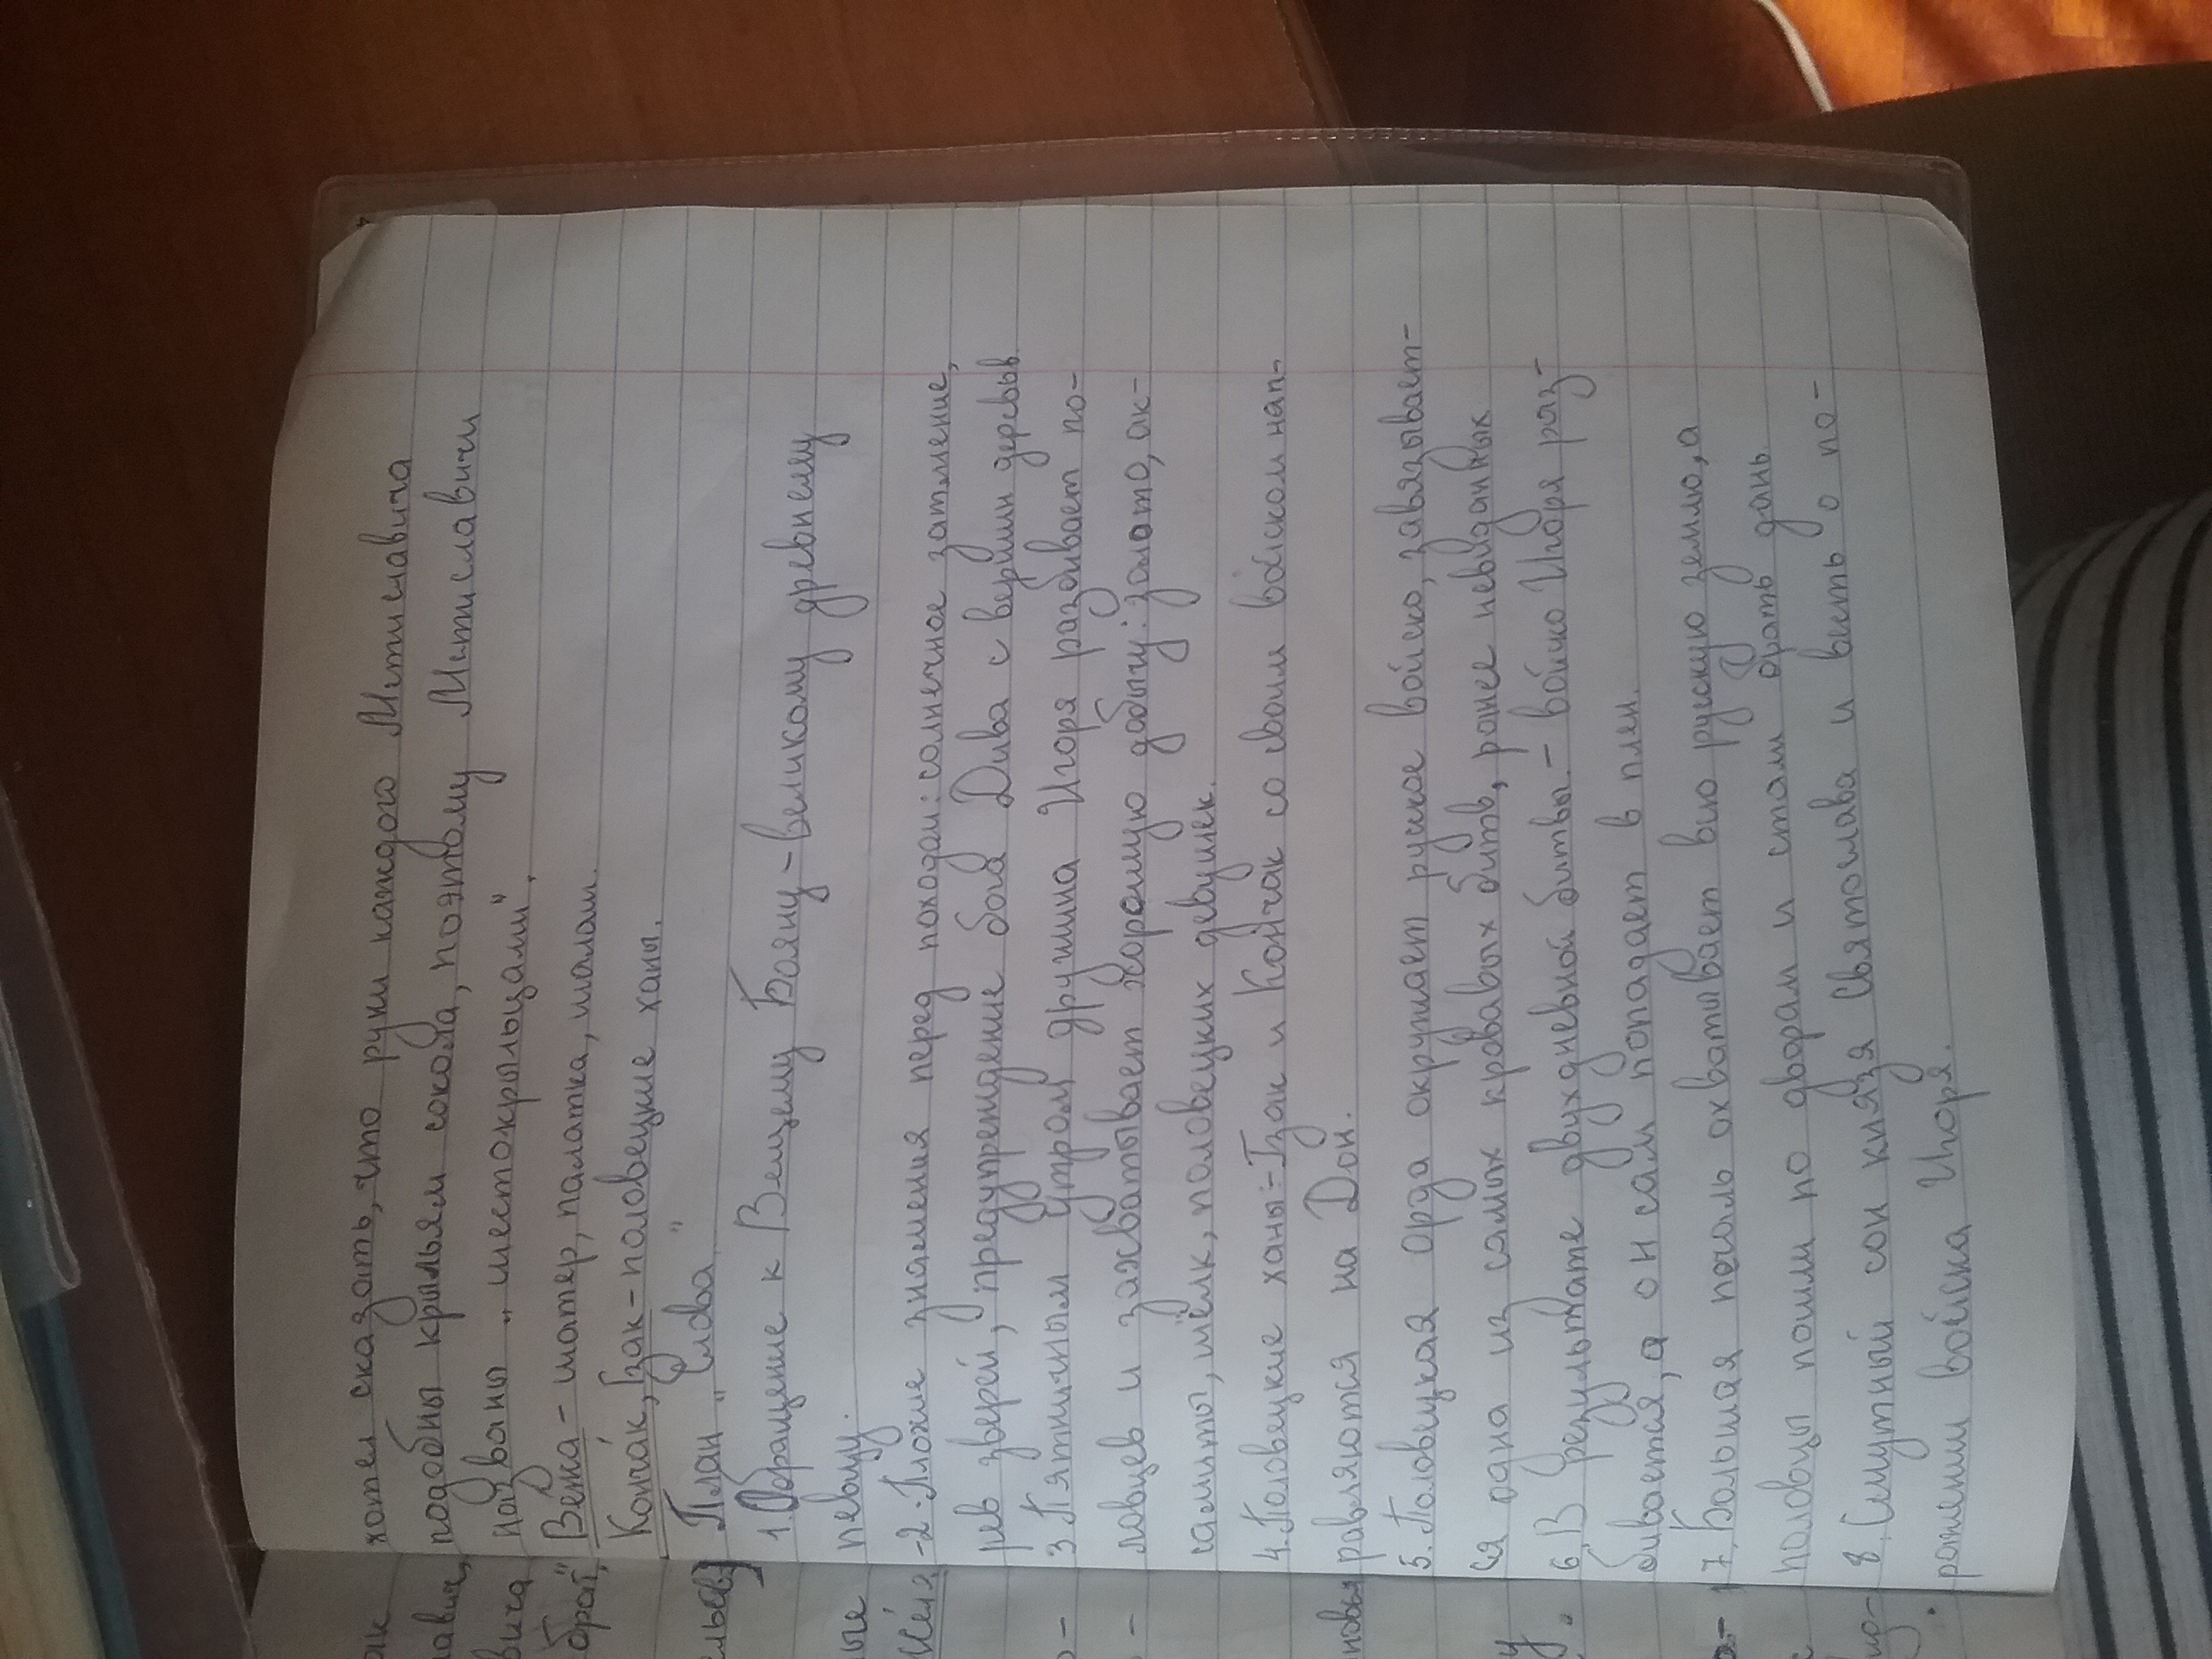 хотел сказать, что руки каждого Мстиславича
подобны крыльям сокола, поэтому Мстиславичи
названы „шестокрыльцами".
Вежа - шатер, палатка, шалаш.
Кончак, Гзак - половецкие ханы.
План „Слова"
1. Обращение к Вещему Бояну - великому древнему
певцу.
2. Плохие знамения перед походом: солнечное затмение,
рев зверей, предупреждение бога Дива с вершин деревьв.
3. Пятничным утром дружина Игоря разбивает по-
ловцев и захватывает хорошую добычу: золото, ак-
самиты, шёлк, половецких девушек.
4. Половецкие ханы - Гзак и Кончак со своим войском нап-
равляются на Дон.
5. Половецкая орда окружает руское войско, завязывает-
ся одна из самых кровавых битв, ранее невиданных
6. В результате двухдневной битвы - войско Игоря раз-
бивается, а он сам попадает в плен.
7. Большая печаль охватывает всю рускую землю, а
половцы пошли по дворам и стали брать дань.
8. Смутный сон князя Святослава и весть о по-
ражении войска Игоря.